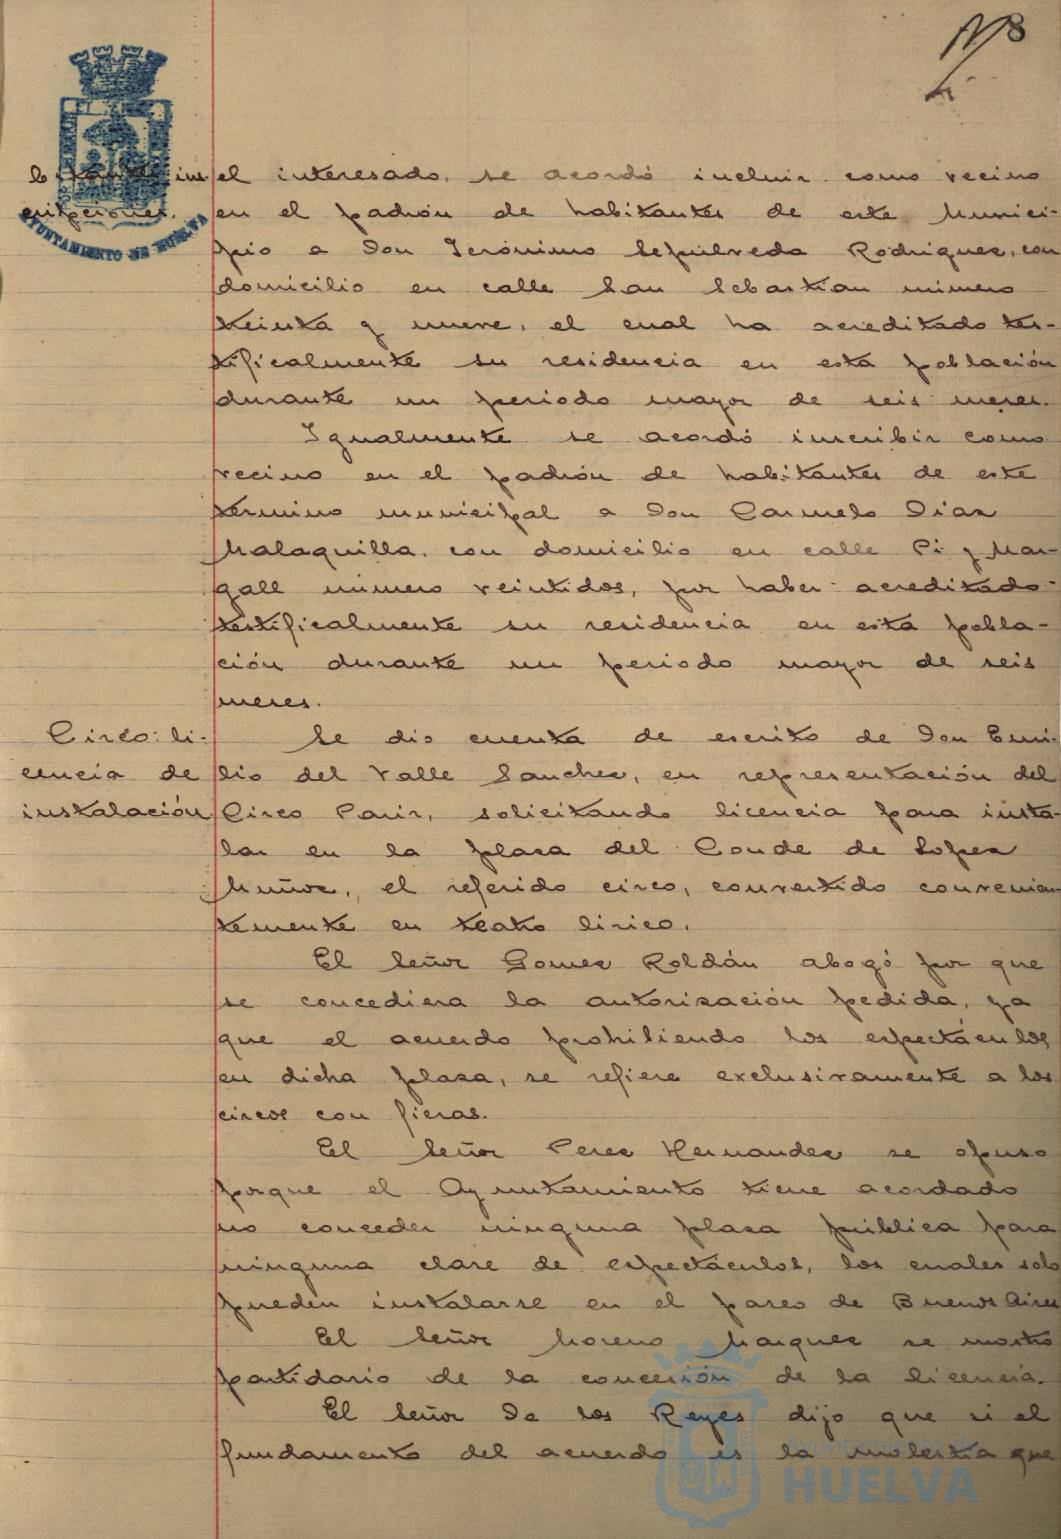 Nº 8
AYUNTAMIENTO DE HUELVA
bitantes ins-
cripciones.
el interesado, se acordó incluir como vecino
en el padrón de habitantes de este Munici-
pio a Don Jerónimo Sepúlveda Rodriguez, con
domicilio en calle San Sebastian número
treinta y nueve, el cual ha acreditado tes-
tificalmente su residencia en esta población
durante un periodo mayor de seis meses.
Igualmente se acordó inscribir como
vecino en el padrón de habitantes de este
termino municipal a Don Carmelo Dias
Malaquilla, con domicilio en calle Pi y Mar-
gall número veintidos, por haber acreditado
testificalmente su residencia en esta pobla-
ción durante un periodo mayor de seis
meses.
Circo: li-
cencia de
instalación
Se dio cuenta de escrito de Don Emi-
lio del Valle Sanchez, en representación del
Circo Paris, solicitando licencia para insta-
lar en la plaza del Conde de Lopez
Muñoz, el referido circo, convertido convenien-
temente en teatro lirico.
El Señor Gomez Roldán abogó por que
se concediera la autorización pedida, ya
que el acuerdo prohibiendo los espectáculos
en dicha plaza, se refiere exclusivamente a los
circos con fieras.
El Señor Perez Hernandez se opuso
porque el Ayuntamiento tiene acordado
no conceder ninguna plaza pública para
ninguna clase de espectáculos, los cuales solo
pueden instalarse en el paseo de Buenos Aires
El Señor Moreno Marquez se mostró
partidario de la concesión de la licencia.
El Señor De los Reyes dijo que si el
fundamento del acuerdo es la molestia que
HUELVA